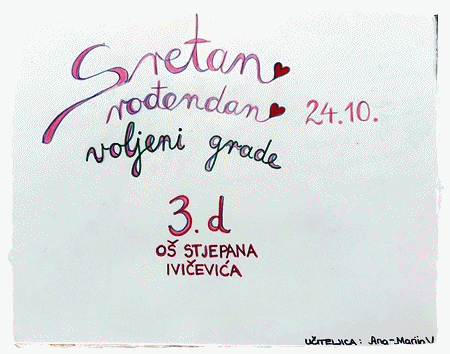 Sretan
rođendan 24.10.
voljeni grade
3. d
OŠ STJEPANA
IVIČEVIĆA
UČITELJICA: Ana-Mariin V